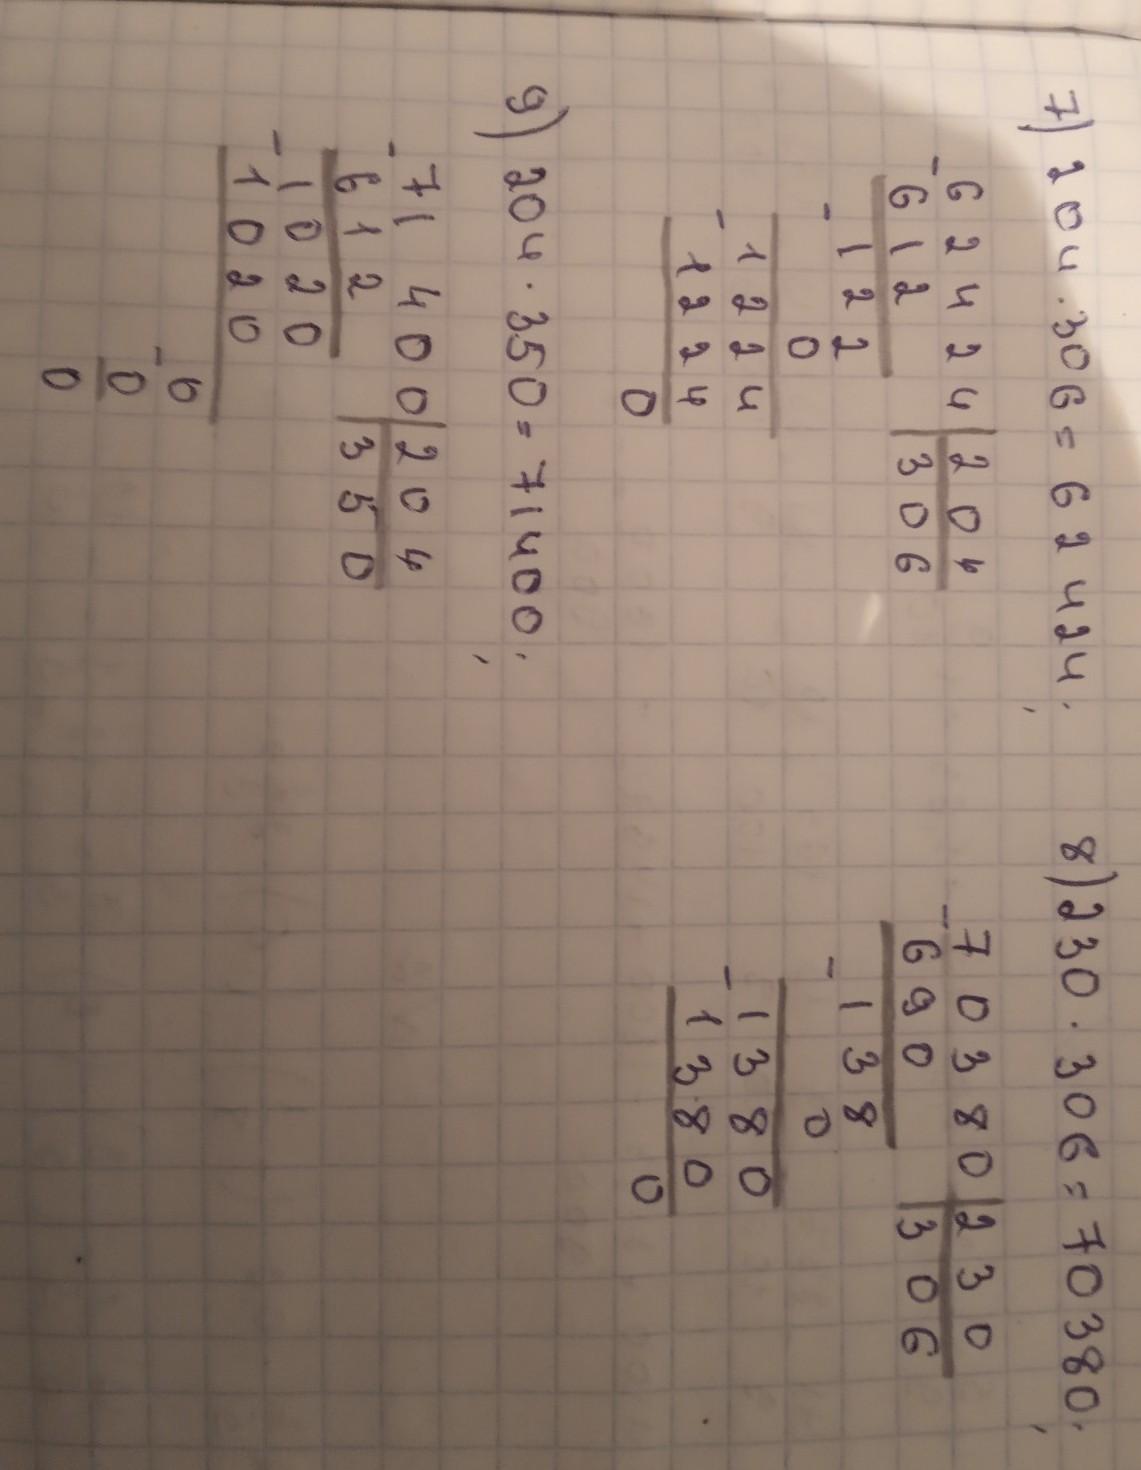 7) 204 · 306 = 62 424;
- 62424 | 204
612 | 306
- 122
0
- 1224
1224
0
8) 230 · 306 = 70380;
- 70380 | 230
690 | 306
- 138
0
- 1380
1380
0
9) 204 · 350 = 71400;
- 71400 | 204
612 | 350
- 1020
1020
- 0
0
0